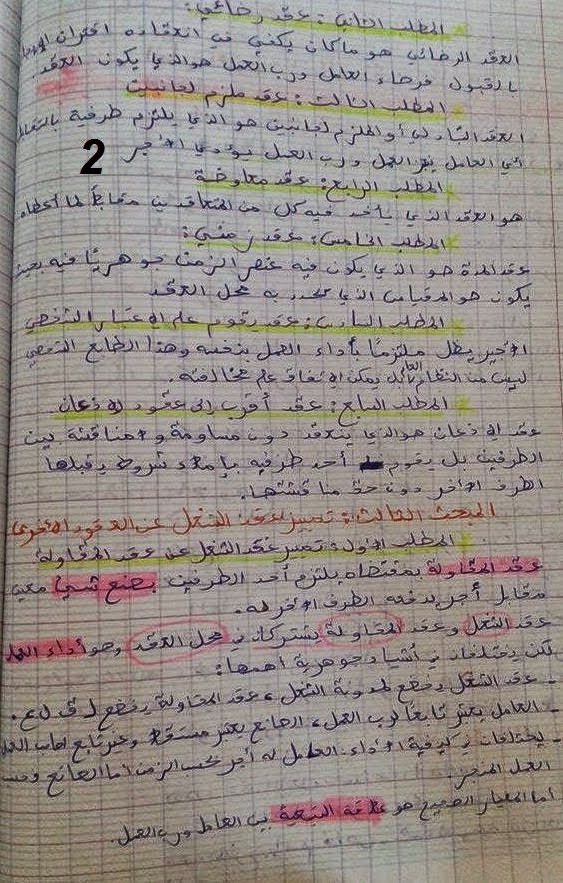 المطلب الثاني: عقد رضائي:
العقد الرضائي هو ما كان يكفي في انعقاده اقتران
بالقبول فرضاء العامل ورب العمل هو الذي يكون العقد.
المطلب الثالث: عقد ملزم لجانبين
العقد التبادلي أو الملزم لجانبين هو الذي يلتزم طرفيه
أي العامل العمل ورب العمل يؤدي الأجر
2
المطلب الرابع: عقد معاوضة
هو العقد الذي يأخذ فيه كل من المتعاقدين مقابلاً لما أعطاه.
المطلب الخامس: عقد زمني:
عقد المدة هو الذي يكون فيه عنصر الزمن جوهريًا فيه بحيث
يكون هو المقياس الذي يحدد به محل العقد
المطلب السادس: عقد يقوم على الاعتبار الشخصي
الأجير يظل ملتزمًا بأداء العمل بنفسه وهذا الطابع الشخصي
ليس من النظام العام بل يمكن الاتفاق على مخالفته.
المطلب السابع: عقد أقرب إلى عقود الاذعان
عقد الاذعان هو الذي ينعقد دون مساومة ومناقشة بين
الطرفين بل يقوم أحد طرفيه بإملاء شروط يقبلها
الطرف الآخر دون حق مناقشتها.
المبحث الثالث: تمييز عقد الشغل عن العقود الأخرى
المطلب الأول: تمييز عقد الشغل عن عقد المقاولة
عقد المقاولة بمقتضاه يلتزم أحد الطرفين بصنع شيئ معين
مقابل أجر يدفعه الطرف الآخر له.
عقد الشغل وعقد المقاولة يشتركان في محل العقد وهو أداء العمل
لكن يختلفان في أشياء جوهرية أهمها:
- عقد الشغل يخضع لمدونة الشغل، عقد المقاولة يخضع ل ق ل ع.
- العامل يعتبر تابعًا لرب العمل، الصانع يعتبر مستقلا وغير تابع لصاحب العمل
- يختلفان في كيفية الأداء. العامل له أجر بحسب الزمن أما الصانع
العمل المنجز.
أما المعيار الصحيح هو علاقة التبعية بين العامل ورب العمل.